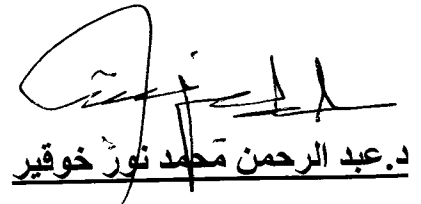 د.عبد الرحمن محمد نور خوقير